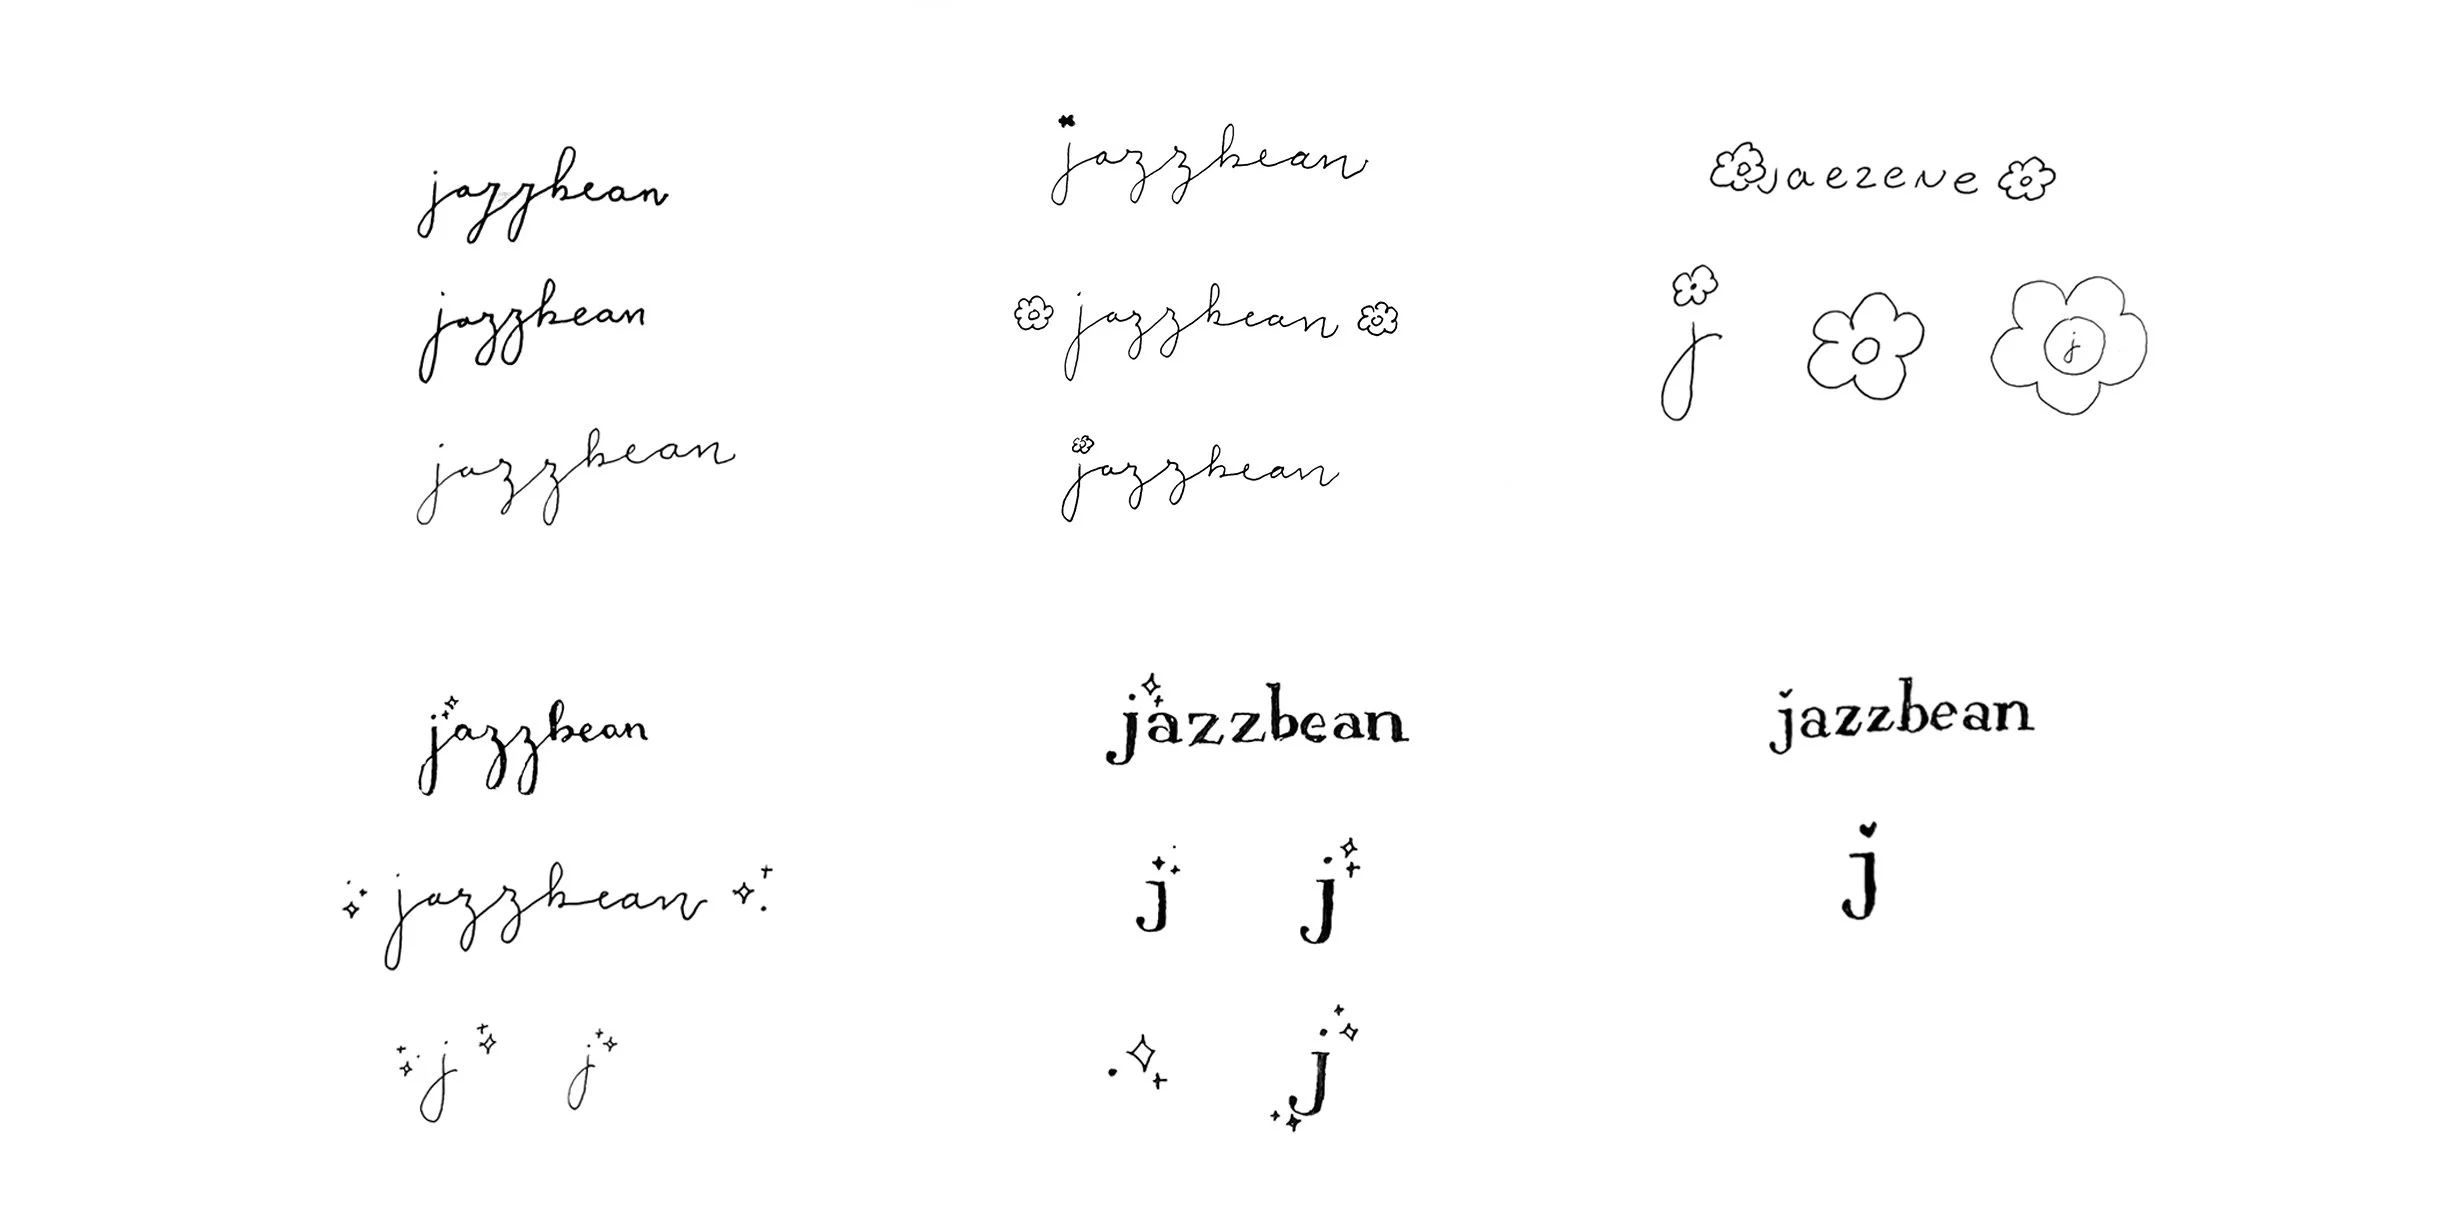 jazzbean
jazzbean
jazzbean
jazzbean
jazzbean
jazzbean
jaezene
j
j
jazzbean
jazzbean
j
j
jazzbean
j
j
j
jazzbean
j